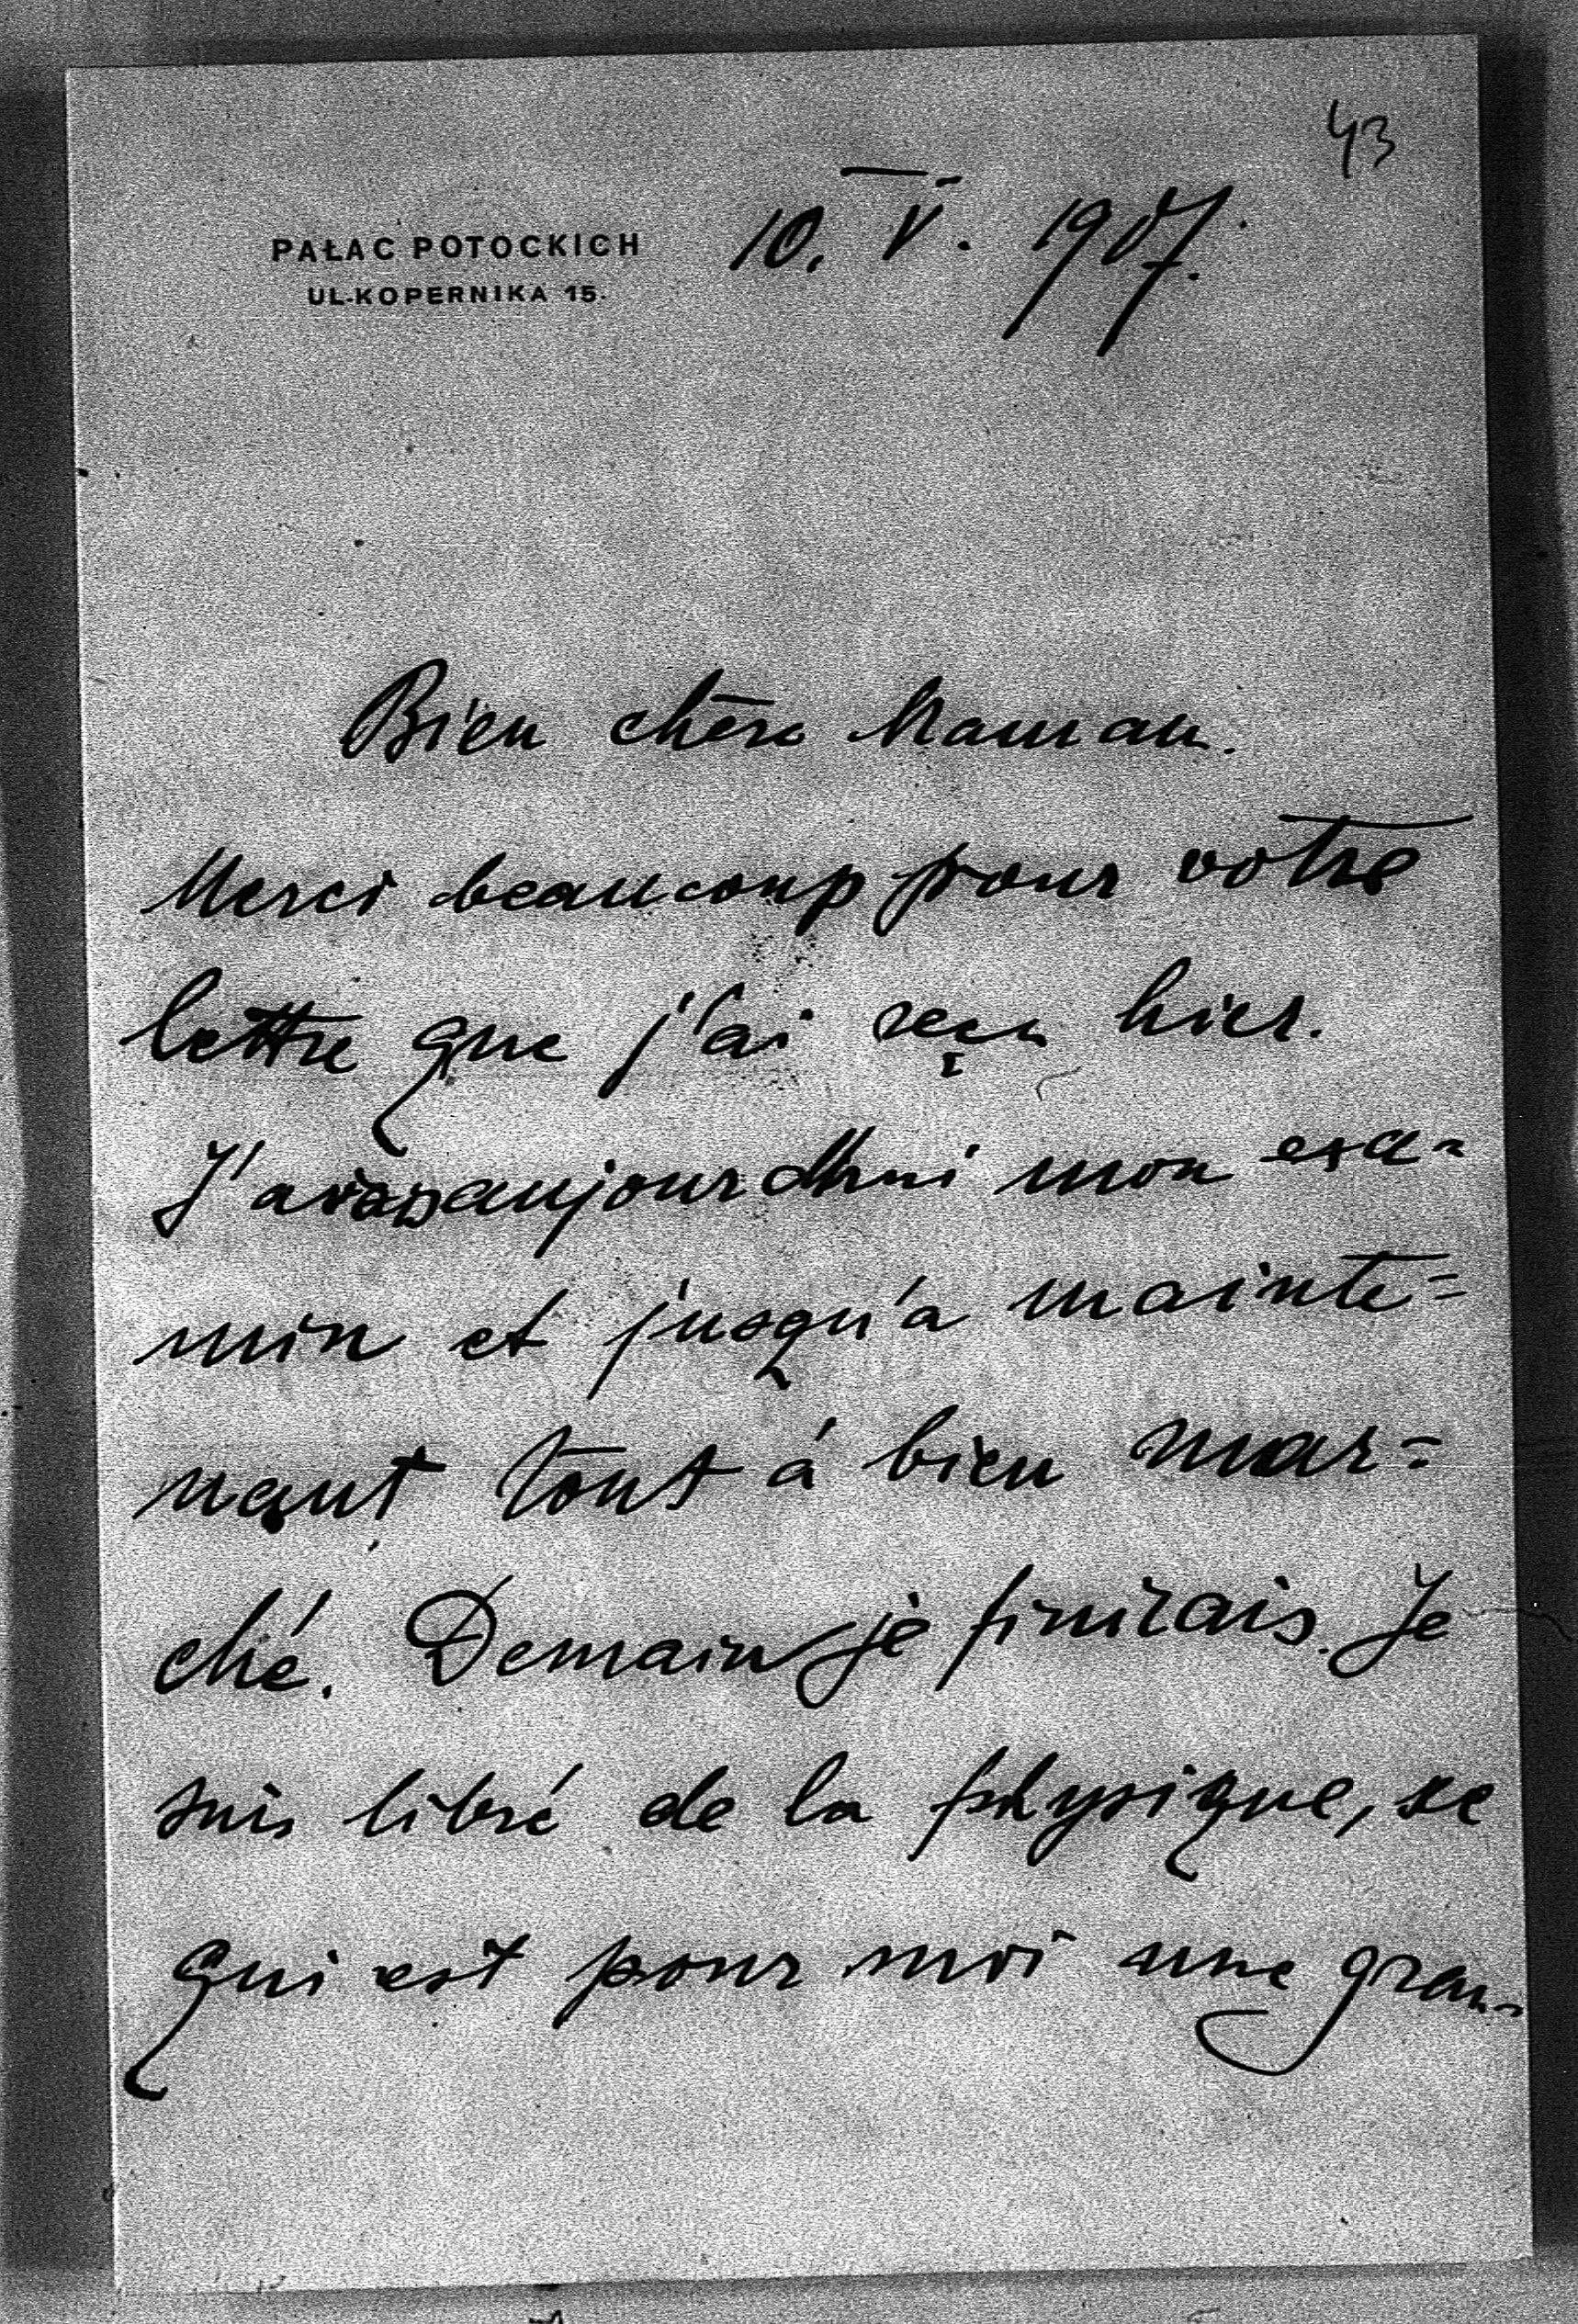 43
PAŁAC POTOCKICH
UL-KOPERNIKA 15.
10. V. 1907.
Bien chère Maman.
Merci beaucoup pour votre
lettre que j'ai reçu hier.
J'avais aujourdhui mon exa-
min et jusqu'a mainte=
nant tout á bien mar=
ché. Demain je finirais. Je
suis libré de la physique, ce
qui est pour moi une gran-